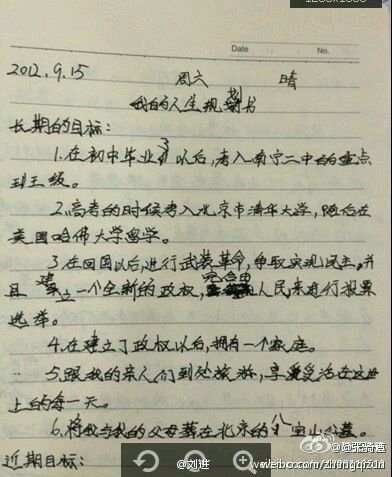 Date No.
2012.9.15 周六 晴
我的人生规划书
长期的目标:
1.在初中毕业了以后,考入南宁二中的重点
班王级。
2.高考的时候考入北京市清华大学,随后在
美国哈佛大学留学。
3.在回国以后,进行武装革命,争取实现民主,并
且建立一个全新的政权,完全由人民来进行投票
选举。
4.在建立了政权以后,拥有一个家庭。
5.跟我的亲人们到处旅游,享受生活在这世
上的每一天。
6.将我与我的父母葬在北京的八宝山公墓。
近期目标:
@刘进